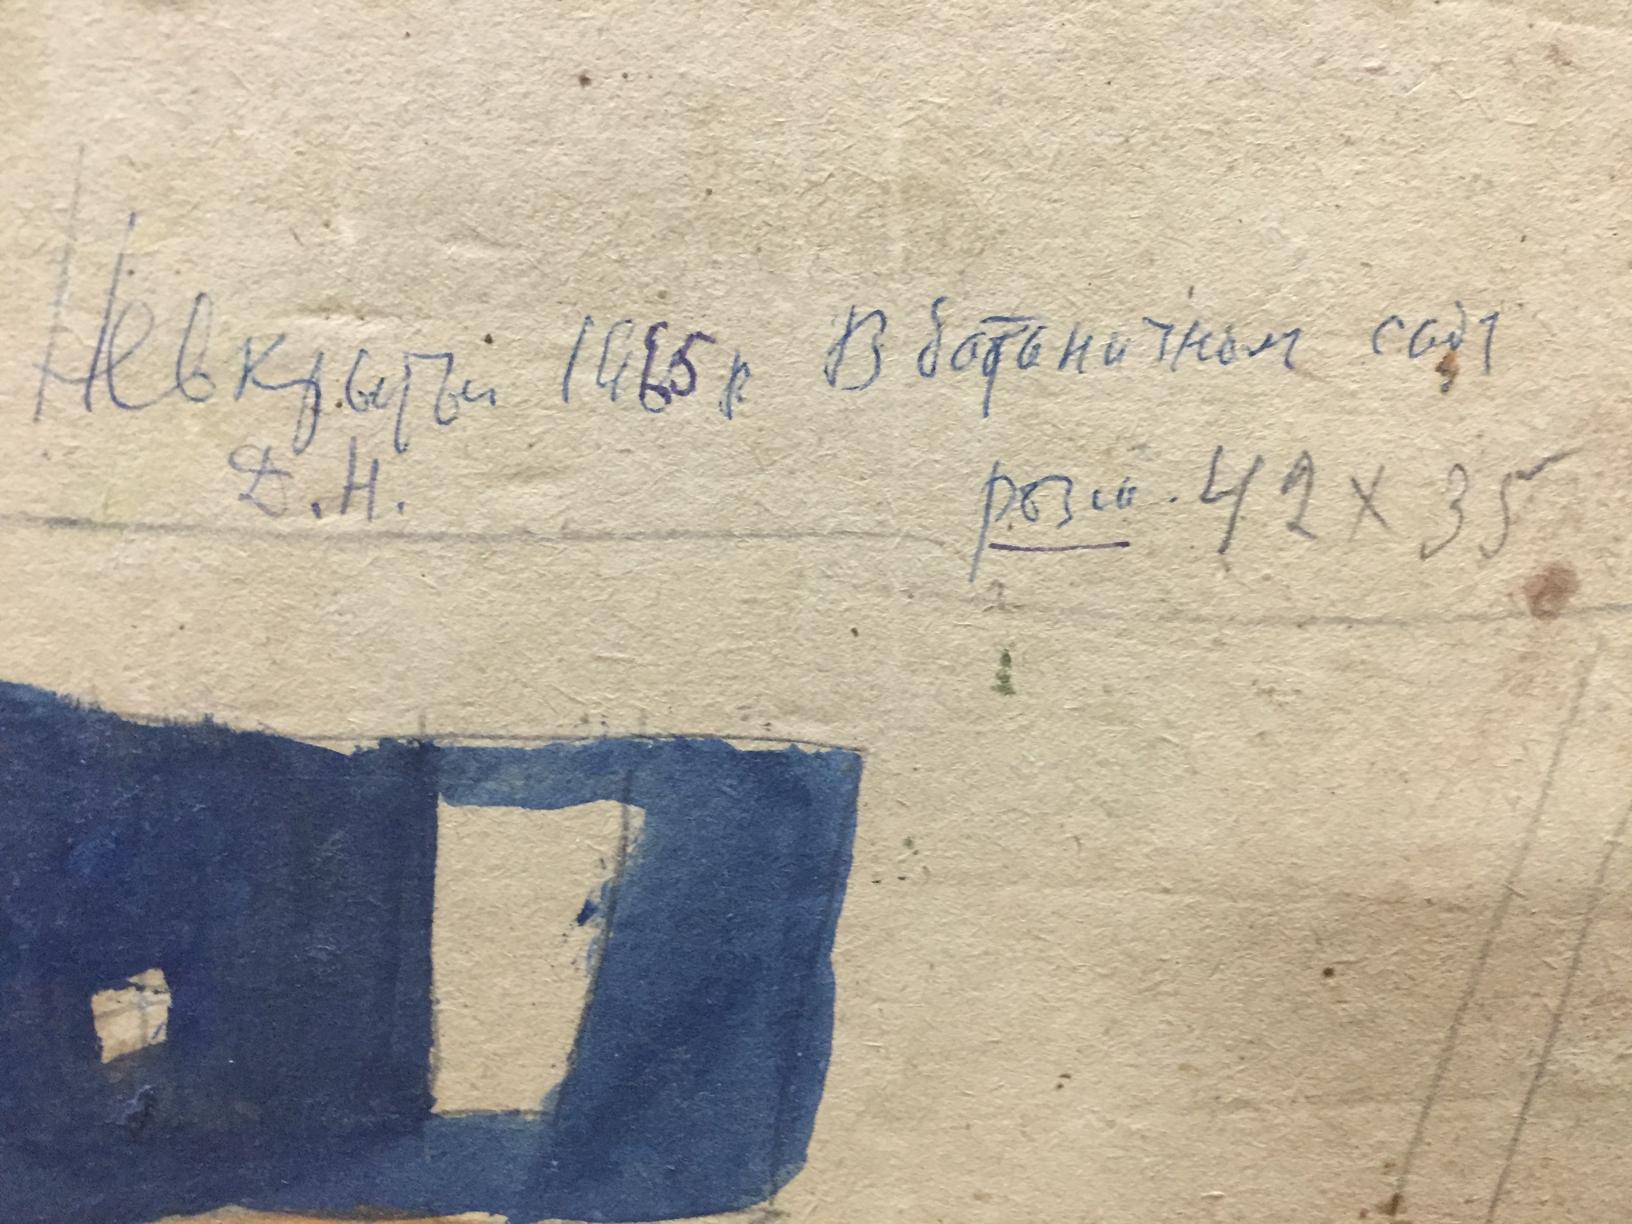 Невкрытый 1965 р В ботаничном саді
Д.Н.
розм. 42 х 35